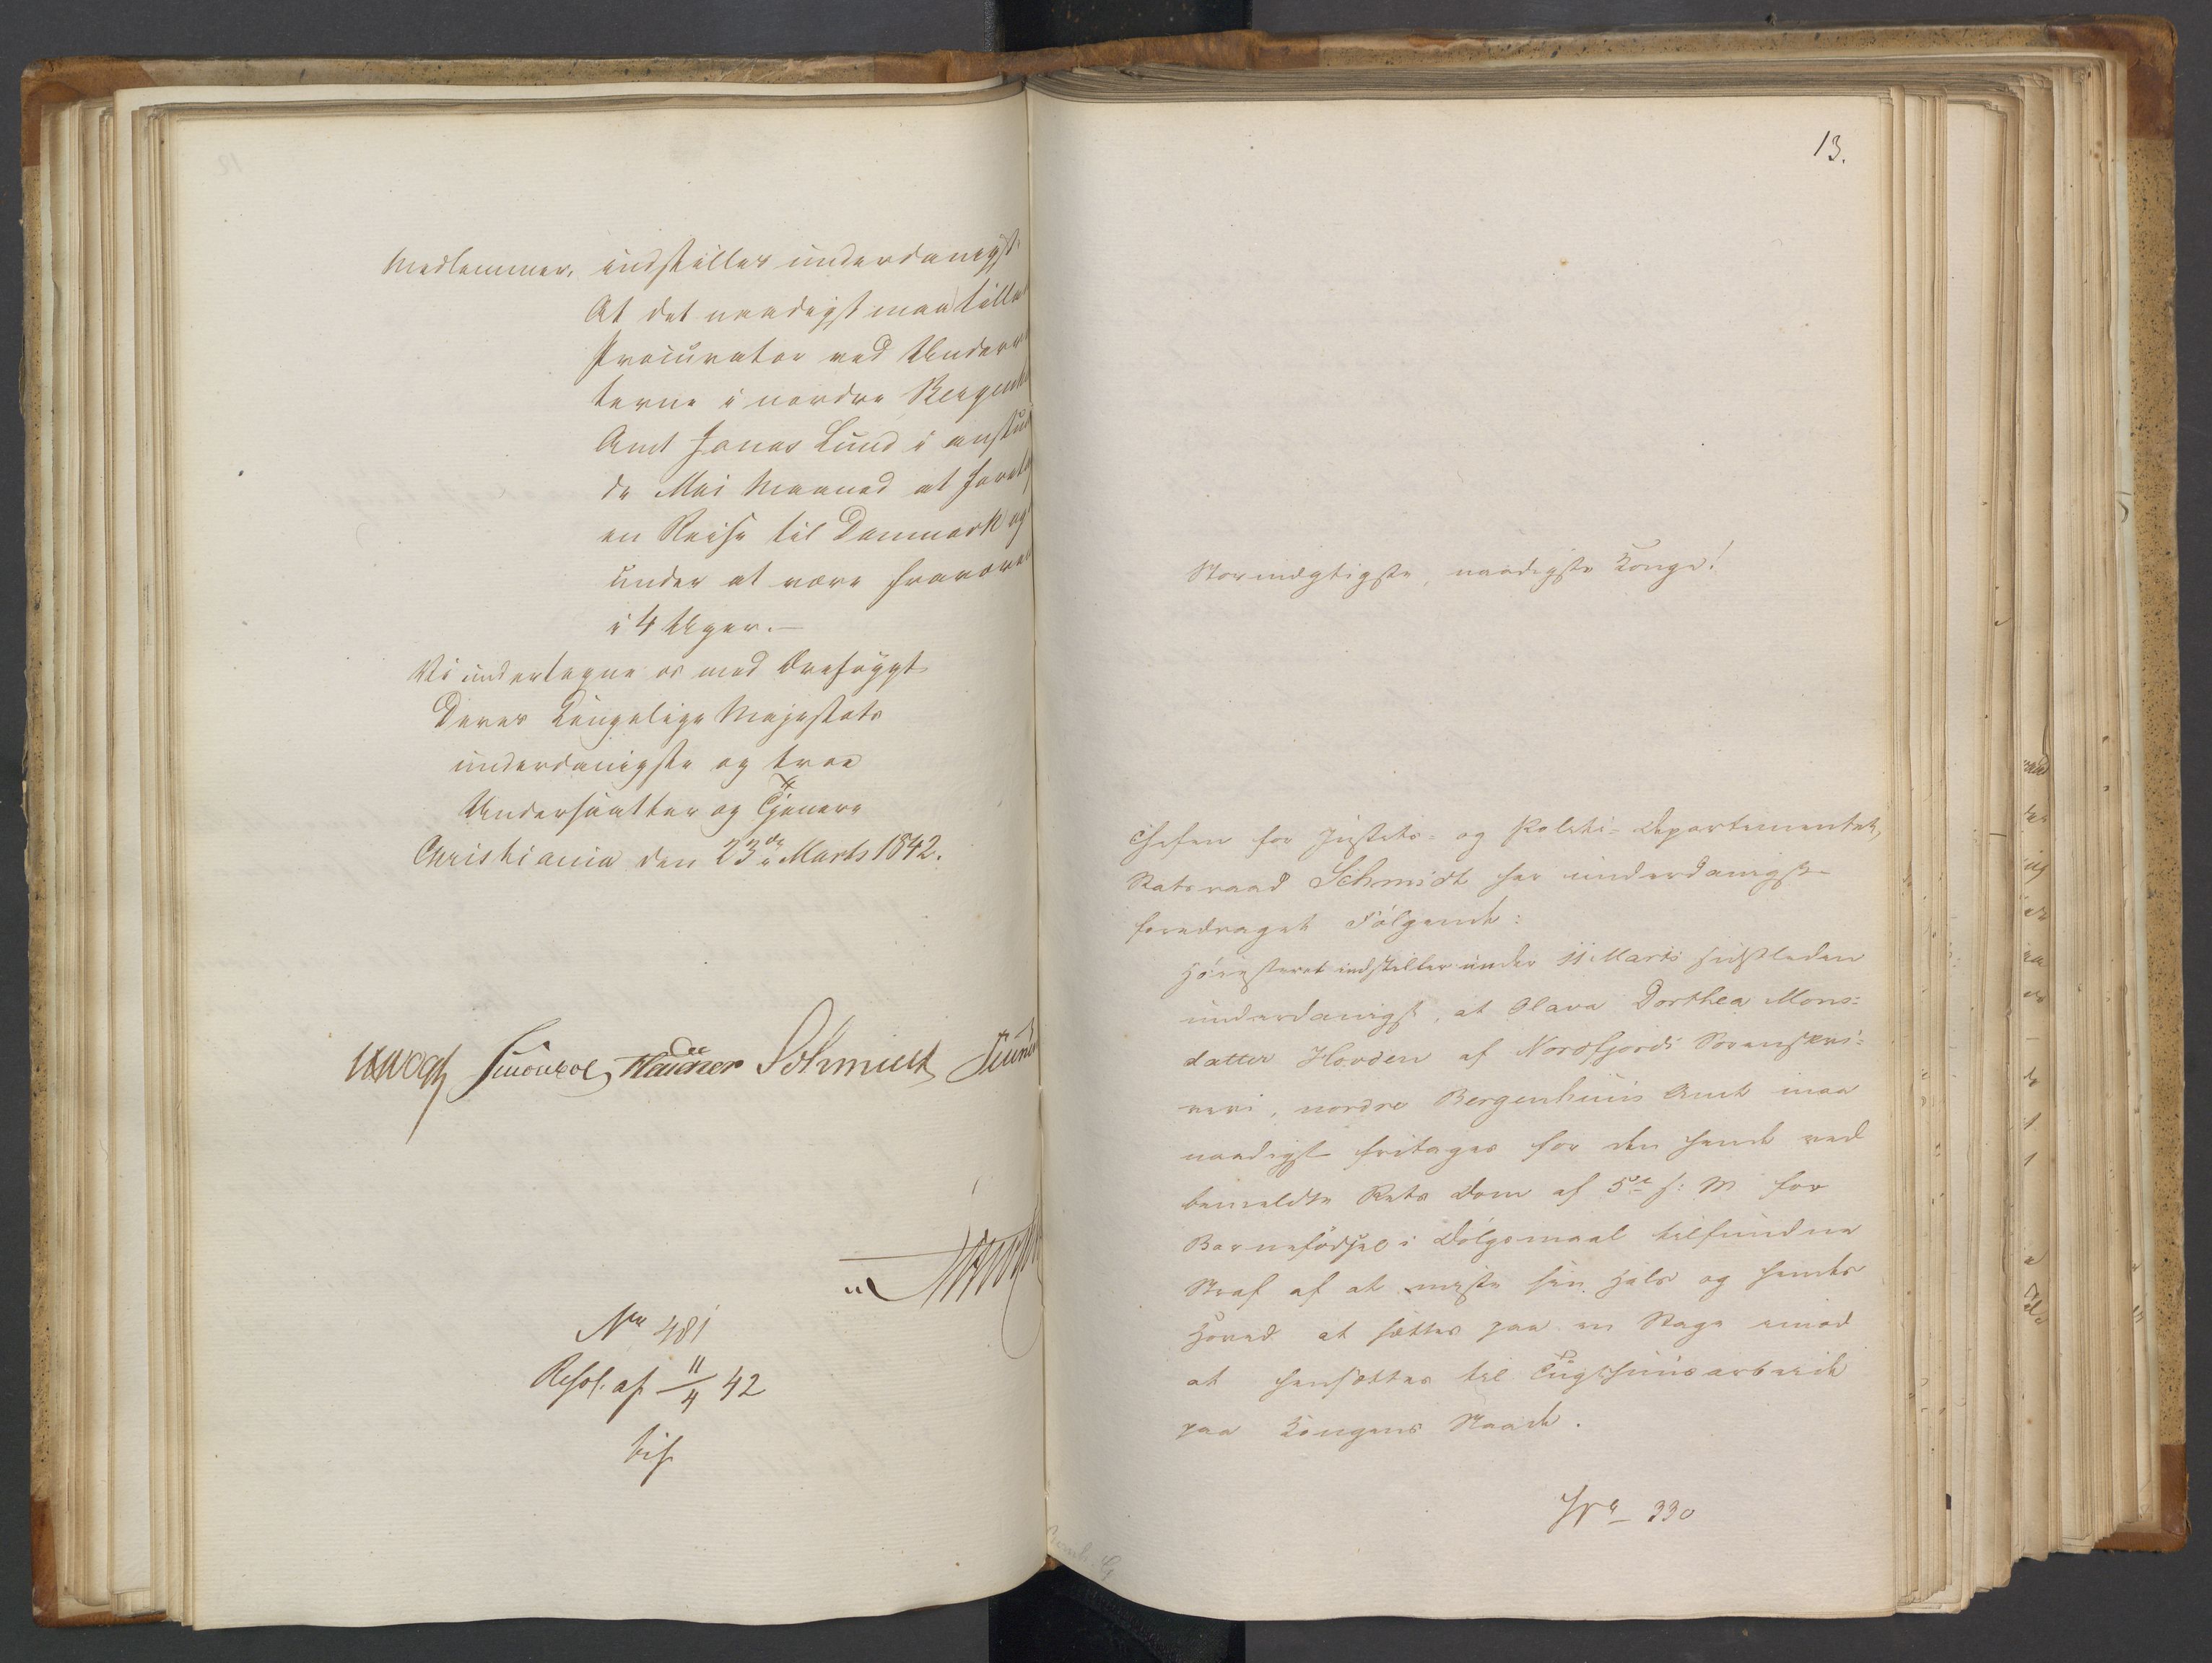 Medlemmer, indstilles underdanigst:
At det naadigst maa tilla
Procurator ved Underre
terne i nordre Bergenh
Amt Jonas Lund i anstun
de Mai Maaned at foreta
en Reise til Danmark og
under at være fraværen
i 4 Uger.—
Vi undertegne os med Ærefrygt
Deres Kongelige Majestæts
underdanigste og troe
Undersaatter og Tjenere
Christiania den 23de Marts 1842.
Vogt Sibbern Hauner Schmidt
No 481
Resol. af 11/4 42
13.
Stormægtigste, naadigste Konge!
Chefen for Justits- og Politi-Departementet,
Statsraad Schmidt har underdanigst
foredraget Følgende:
Høiesteret indstiller under 11 Marts sidstleden
underdanigst, at Olava Dorthea Mons-
datter Hovden af Nordfjords Sorenskri-
veri, nordre Bergenhuus Amt maa
naadigst fritages for den hende ved
bemeldte Rets Dom af 5te s: M for
Barnefødsel i Dølgsmaal tilfundne
Straf af at miste sin Hals og hendes
Hoved at sættes paa en Stage imod
at hensættes til Tugthuusarbeide
paa Kongens Naade.
No 330